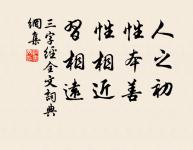 人之初
性本善
性相近
習相遠
三字經全文詞典
網集